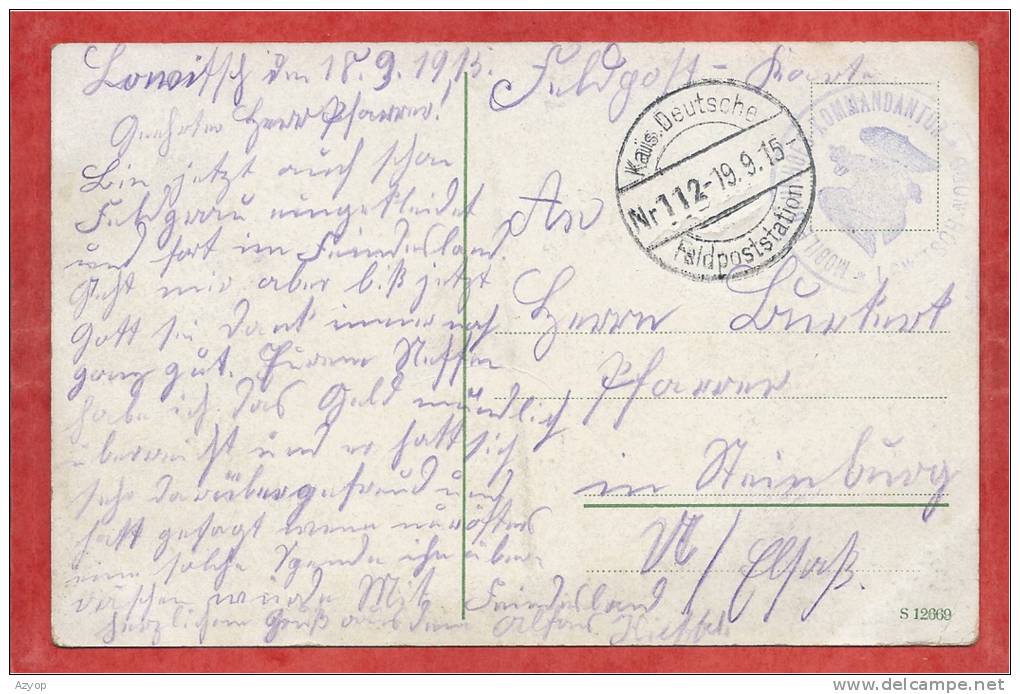 Lowitsch den 18.9.1915.
Feldpost-Karte
Geehrter Herr Pfarrer!
Bin jetzt auch schon
Feldgrau eingekleidet
und fort im Feindesland.
Geht mir aber bis jetzt
Gott sei dank immer noch
ganz gut. Neffen
habe ich das Geld mündlich
überreicht und er hatt sich
sehr darüber gefreud und
hatt gesagt wenn nur öfters
eine solche Spende ihn über-
raschen würde Mit
herzlichem Gruß aus dem Feindesland
Alfons
Kais. Deutsche
Nr 112 - 19.9.15 -
Feldpoststation
KOMMANDANTUR
MOBILE
An
Herrn Burkert
Pfarrer
in Steinburg
U/Elsaß.
S 12669
Azyop
delcampe.net